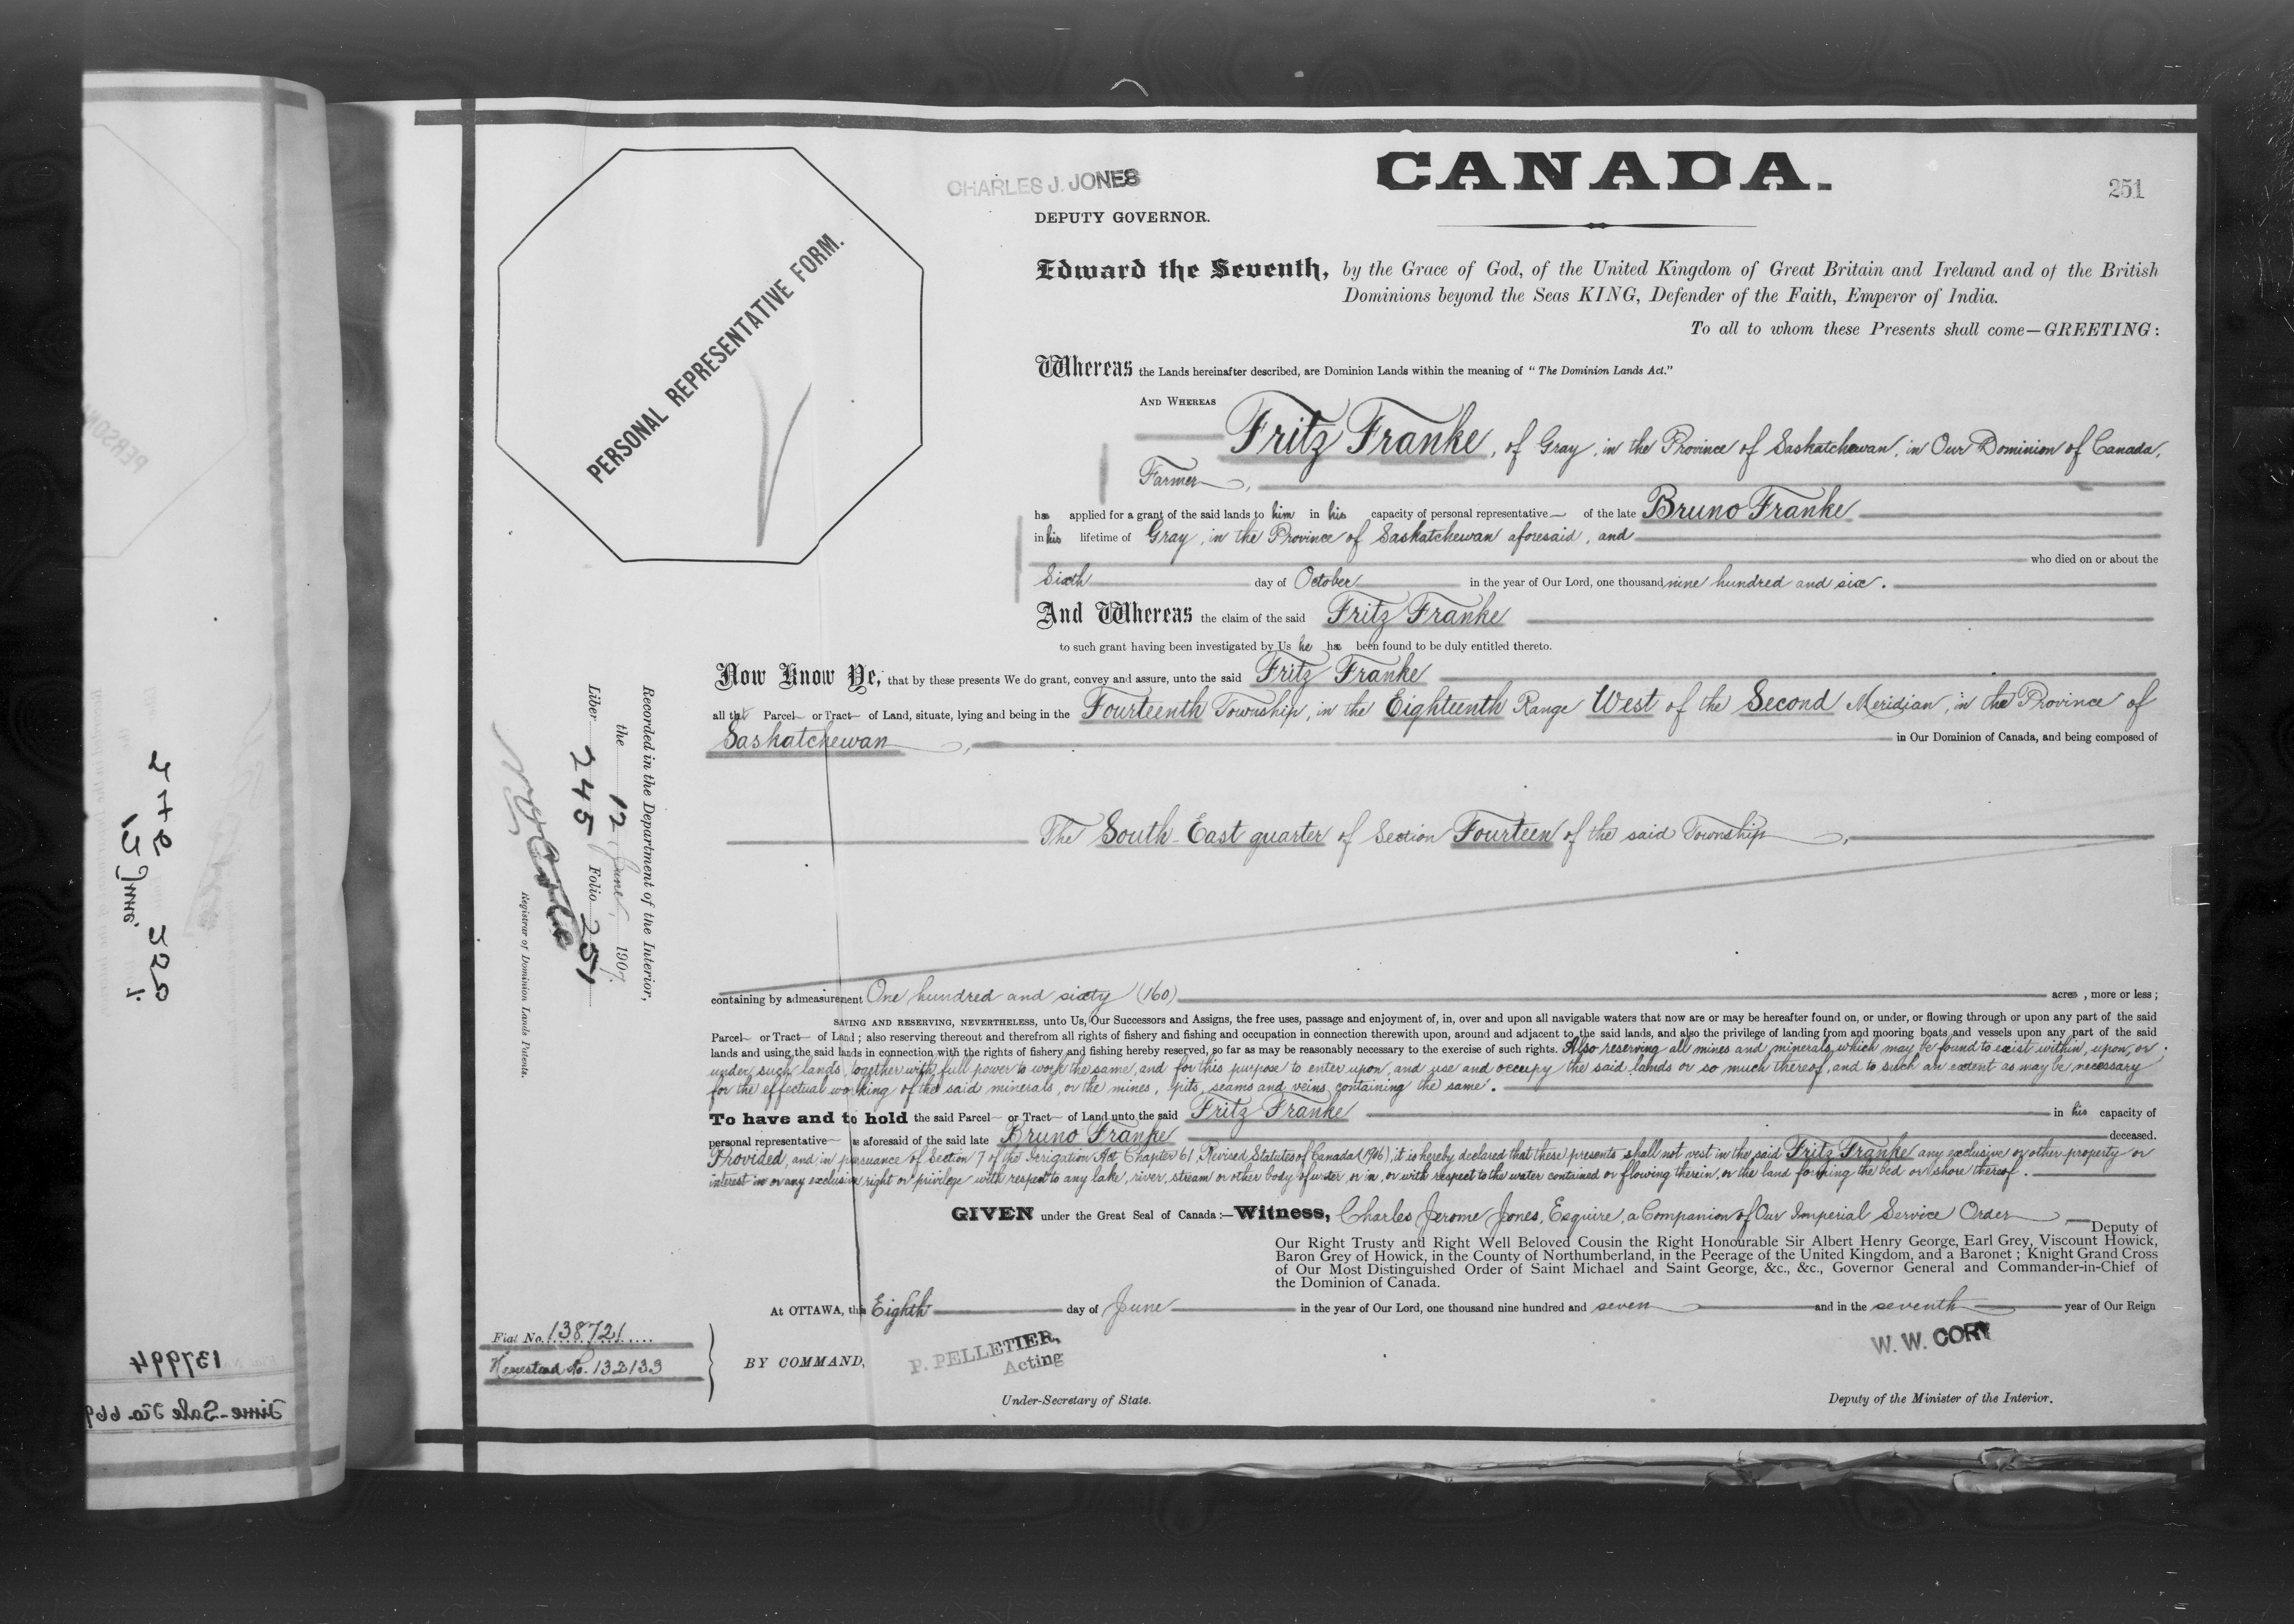 CANADA.
251
CHARLES J. JONES
DEPUTY GOVERNOR.
PERSONAL REPRESENTATIVE FORM.
Edward the Seventh, by the Grace of God, of the United Kingdom of Great Britain and Ireland and of the British
Dominions beyond the Seas KING, Defender of the Faith, Emperor of India.
To all to whom these Presents shall come—GREETING:
Whereas the Lands hereinafter described, are Dominion Lands within the meaning of "The Dominion Lands Act."
AND WHEREAS
Fritz Franke, of Gray, in the Province of Saskatchewan, in Our Dominion of Canada,
Farmer,
has applied for a grant of the said lands to him in his capacity of personal representative of the late Bruno Franke
in his lifetime of Gray, in the Province of Saskatchewan aforesaid, and
who died on or about the
Sixth day of October in the year of Our Lord, one thousand nine hundred and six.
And Whereas the claim of the said Fritz Franke
to such grant having been investigated by Us he has been found to be duly entitled thereto.
Now Know Ye, that by these presents We do grant, convey and assure, unto the said Fritz Franke
all that Parcel or Tract of Land, situate, lying and being in the Fourteenth Township, in the Eighteenth Range West of the Second Meridian, in the Province of
Saskatchewan, in Our Dominion of Canada, and being composed of
The South-East quarter of Section Fourteen of the said Township,
containing by admeasurement One hundred and sixty (160) acres, more or less;
SAVING AND RESERVING, NEVERTHELESS, unto Us, Our Successors and Assigns, the free uses, passage and enjoyment of, in, over and upon all navigable waters that now are or may be hereafter found on, or under, or flowing through or upon any part of the said
Parcel or Tract of Land; also reserving thereout and therefrom all rights of fishery and fishing and occupation in connection therewith upon, around and adjacent to the said lands, and also the privilege of landing from and mooring boats and vessels upon any part of the said
lands and using the said lands in connection with the rights of fishery and fishing hereby reserved, so far as may be reasonably necessary to the exercise of such rights. Also reserving all mines and minerals which may be found to exist within, upon, or
under such lands, together with full power to work the same, and for this purpose to enter upon, and use and occupy the said lands or so much thereof, and to such an extent as may be necessary
for the effectual working of the said minerals, or the mines, pits, seams and veins containing the same.
To have and to hold the said Parcel or Tract of Land unto the said Fritz Franke in his capacity of
personal representative as aforesaid of the said late Bruno Franke deceased.
Provided, and in pursuance of Section 7 of the Irrigation Act Chapter 61, Revised Statutes of Canada (1906), it is hereby declared that these presents shall not vest in the said Fritz Franke any exclusive or other property or
interest in or any exclusive right or privilege with respect to any lake, river, stream or other body of water, or in, or with respect to the water contained or flowing therein, or the land forming the bed or shore thereof.
GIVEN under the Great Seal of Canada:—Witness, Charles Jerome Jones, Esquire, a Companion of Our Imperial Service Order, Deputy of
Our Right Trusty and Right Well Beloved Cousin the Right Honourable Sir Albert Henry George, Earl Grey, Viscount Howick,
Baron Grey of Howick, in the County of Northumberland, in the Peerage of the United Kingdom, and a Baronet; Knight Grand Cross
of Our Most Distinguished Order of Saint Michael and Saint George, &c., &c., Governor General and Commander-in-Chief of
the Dominion of Canada.
At OTTAWA, this Eighth day of June in the year of Our Lord, one thousand nine hundred and seven and in the seventh year of Our Reign
Fiat No. 138721
Homestead No. 132133
BY COMMAND,
P. PELLETIER,
Acting
Under-Secretary of State.
W. W. CORY
Deputy of the Minister of the Interior.
Recorded in the Department of the Interior,
the 12 June, 1907.
Liber 245 Folio 251
Registrar of Dominion Lands Patents.
137994
Time-Sale No. 669